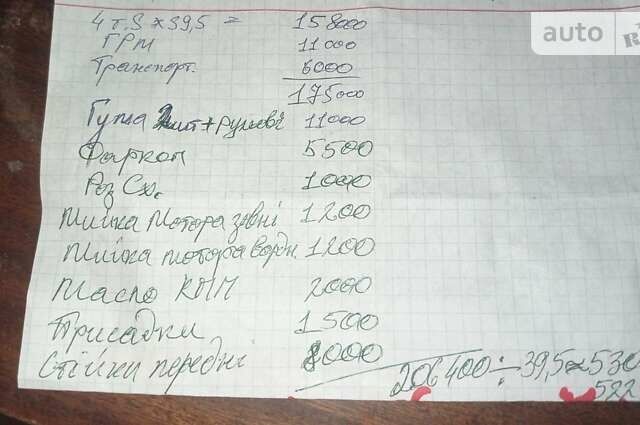 4 т.$ × 39,5 = 158000
ГРМ 11000
Транспорт. 6000
175000
Гума 2шт + рулеві 11000
Фаркоп 5500
Роз Сх. 1000
Мийка Мотора зовні 1200
Мийка мотора 1200
Масло КПП 2000
Присадки 1500
Стійки передні 8000
206400 ÷ 39,5 ≈ 530
522
auto
R